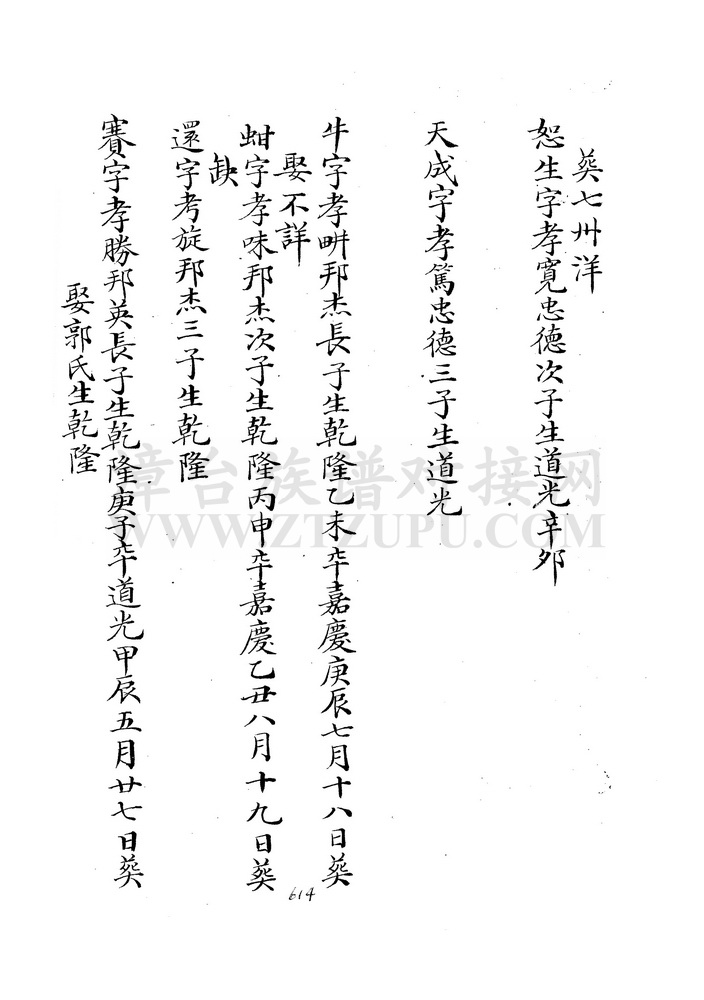 葬七州洋
恕生字孝寬忠德次子生道光辛卯
天成字孝篤忠德三子生道光
牛字孝畊邦杰長子生乾隆乙未卒嘉慶庚辰七月十八日葬
娶不詳
蚶字孝味邦杰次子生乾隆丙申卒嘉慶乙丑八月十九日葬
缺
還字考旋邦杰三子生乾隆
賽字孝勝邦英長子生乾隆庚子卒道光甲辰五月廿七日葬
娶郭氏生乾隆
614
漳台族谱对接网
WWW.ZTZUPU.COM